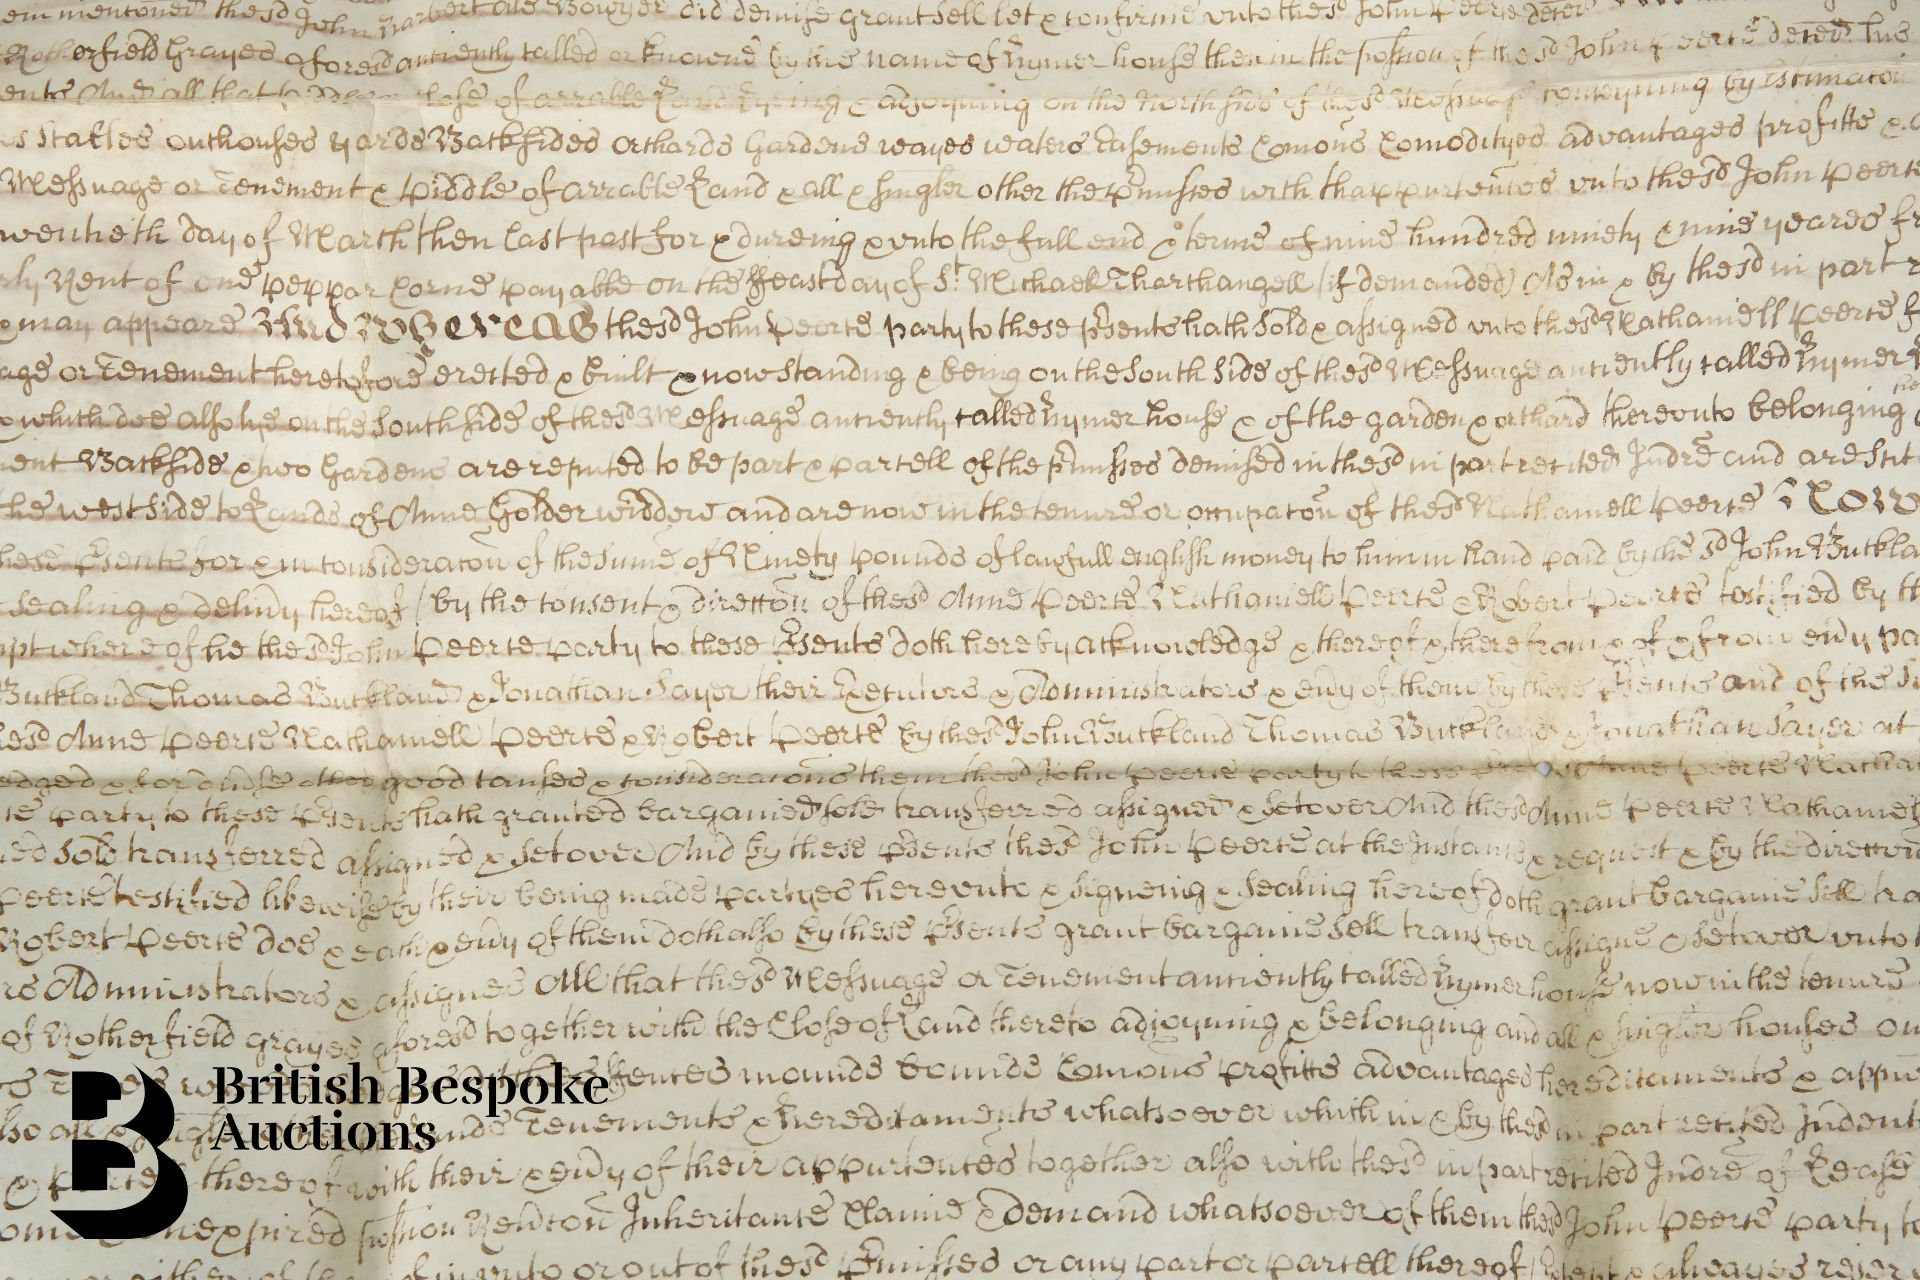 did demise grant sell let & confirme unto the sd John Peerce
Rotherfield Grayes aforesd antiently called or knowne by the name of Hymer house then in the possion of the sd John Peerce deced his
ents And all that close of arrable Land lyeing & adjoyning on the North side of the sd Messuage conteyning by Estimacon
s Stables outhouses yards Backsides Orchards Gardens wayes waters Easements Comons Comodityes advantages profitts &
Messuage or Tenement & Piddle of arrable Land & all & singler other the Pmisses with thappurtences unto the sd John Peerce
wentieth day of March then last past for & dureing & unto the full end & terme of nine hundred ninety & nine yeares fr
rly Rent of one peppar Corne payable on the ffeast day of St Michaell Tharchangell (if demanded) As in & by the sd in part r
& may appeare And Whereas the sd John Peerce party to these psents hath sold & assigned unto the sd Nathaniell Peerce
age or Tenement heretofore erected & built & now standing & being on the South side of the sd Messuage antiently called Hymer
& which doe also lye on the South side of the sd Messuage antiently called Hymer house & of the garden & orchard thereunto belonging
ent Backside & two Gardens are reputed to be part & parcell of the pmisses demised in the sd in part recited Indre and are Scit
the west side to Lands of Anne Golder widdow and are now in the tenure or occupacon of the sd Nathaniell Peerce Now
hese Psents for & in consideracon of the sume of Ninety pounds of lawfull english money to him in hand paid by the sd John Buckla
Sealing & delivy hereof (by the consent & direccon of the sd Anne Peerce Nathaniell Peerce & Robert Peerce testified by th
ipt whereof he the sd John Peerce party to these Psents doth hereby acknowledge & thereof & therefrom & of & from evy pa
Buckland Thomas Buckland & Jonathan Sayer their Executors & Administrators & evy of them by these Psents and of the
he sd Anne Peerce Nathaniell Peerce & Robert Peerce by the sd John Buckland Thomas Buckland & Jonathan Sayer at
edged & for divse other good causes & consideracons them the sd John Peerce party to these Psents Anne Peerce Nathan
ce party to these Psents hath granted bargained sold transferred assigned & setover And the sd Anne Peerce Nathaniel
ed sold transferred assigned & setover And by these Psents the sd John Peerce at the Instance & request & by the direccon
Peerce testified likewise by their being made partyes hereunto & signeing & sealing hereof doth grant bargaine sell tra
Robert Peerce doe & each & evy of them doth also by these Psents grant bargaine sell transferr assigne & setover unto
rs Administrators & assignes All that the sd Messuage or Tenement antiently called Hymer house now in the tenure
of Rotherfield grayes aforesd together with the Close of Land thereto adjoyning & belonging and all & singler houses ou
ffences mounds bounds Comons profitts advantages hereditaments & appu
lso all & Tenements & Hereditaments whatsoever which in & by the sd in part recited Indent
& thereof with their & evy of their appurtences together also with the sd in part recited Indre of Lease
expired possion Revercon Inheritance Claime & demand whatsoever of them the sd John Peerce party to
of in unto or out of the sd Pmisses or any part or parcell thereof & alwayes
British Bespoke
Auctions